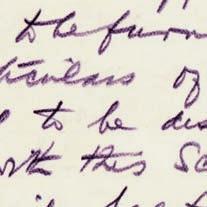 to be furn
ticulars of
to be dis
with this Sc